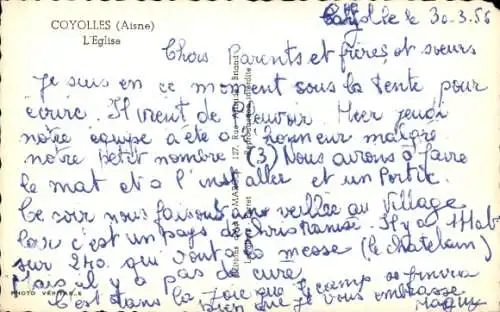 COYOLLES (Aisne)
L'Eglise
le 30-3.56
Chers Parents et frères et sœurs
Je suis en ce moment sous la tente pour
écrire. Il vient de pleuvoir. Hier jeudi
notre équipe a été a l'honneur malgré
notre petit nombre (3) Nous avons à faire
le mat et a l'installer et un Portic.
Ce soir nous faisons une veillée au Village
car c'est un pays de Christianisé. Il y a 1 Hab
sur 240. qui vont a la messe (le chatelain)
Mais il y a pas de curé.
C'est dans la joie que le camp se finira
bien que je vous embrasse
PHOTO VÉRITABLE